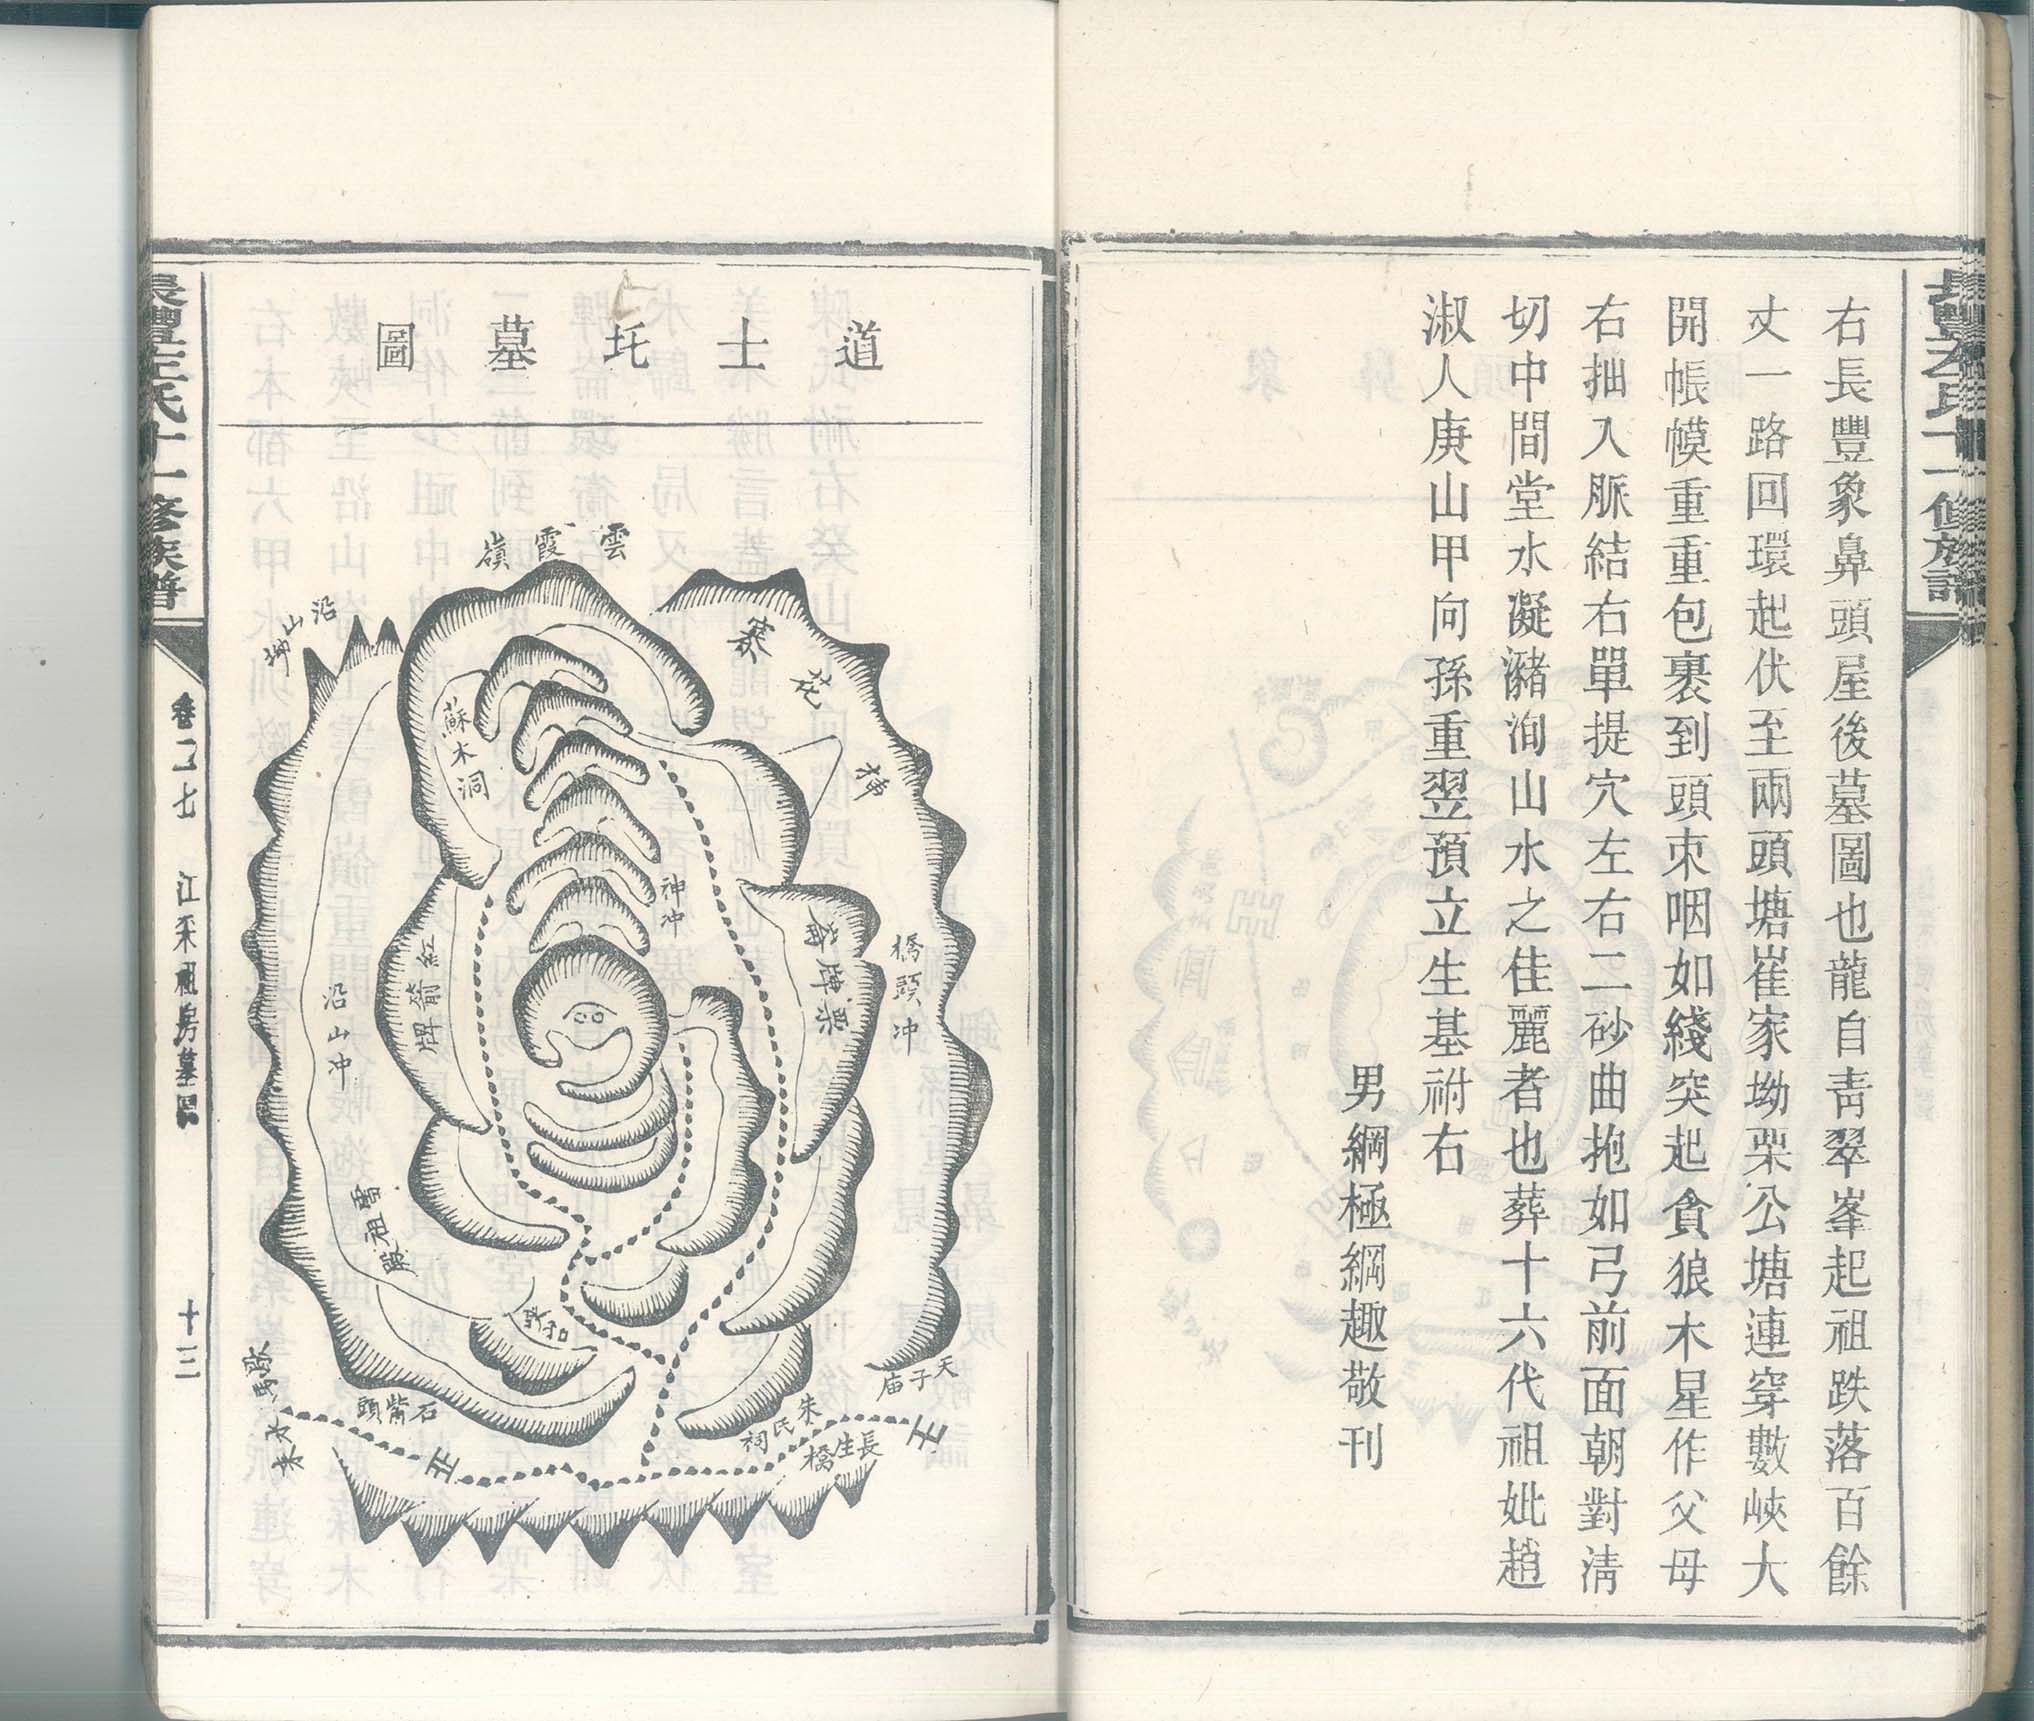 右長豐象鼻頭屋後墓圖也龍自青翠峯起祖跌落百餘
丈一路回環起伏至兩頭塘崔家坳栗公塘連穿數峽大
開帳幙重重包裹到頭束咽如綫突起貪狼木星作父母
右拙入脈結右單提穴左右二砂曲抱如弓前面朝對淸
切中間堂水凝瀦洵山水之佳麗者也葬十六代祖妣趙
淑人庚山甲向孫重翌預立生基祔右
男綱極綱趣敬刊
道士圫墓圖
雲霞嶺
沿山坳
寨花
蘇木洞
神冲
橋頭冲
紅箭牌
沿山冲
雷祖殿
石嘴頭
水來
朱氏祠
長生橋
天子庙
氏十一修族譜
卷二七
江釆祖房墓圖
十三